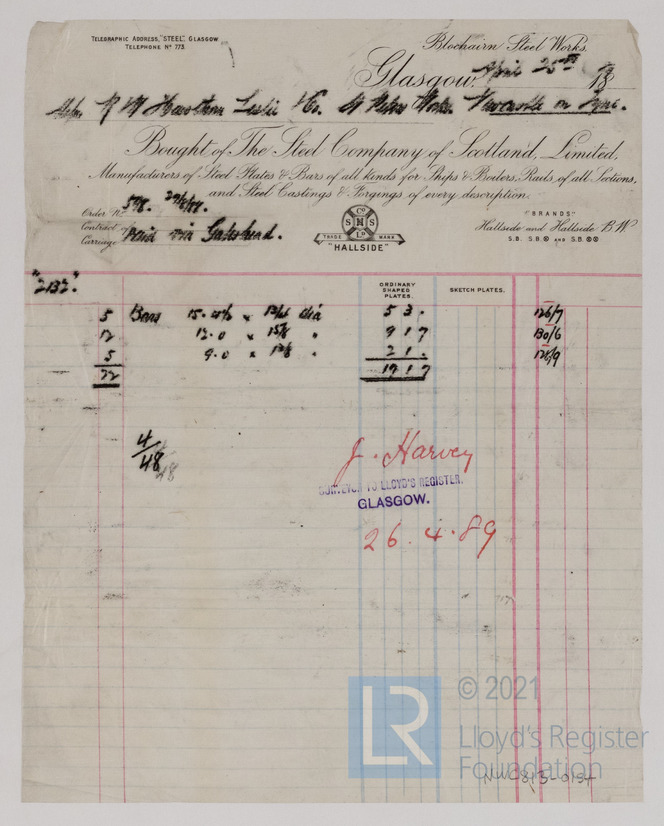 TELEGRAPHIC ADDRESS, "STEEL", GLASGOW
TELEPHONE Nº 773.
Blochairn Steel Works,
Glasgow, April 25th 18
R W Hawthorn Leslie & Co. St Peters Works. Newcastle on Tyne.
Bought of The Steel Company of Scotland, Limited,
Manufacturers of Steel Plates & Bars of all kinds for Ships & Boilers, Rails of all Sections,
and Steel Castings & Forgings of every description.
Order No.
Contract of
Carriage Paid via Gateshead.
Cº
S M S
Lº
TRADE MARK
"HALLSIDE"
"BRANDS"
Hallside and Hallside B.W
S.B. S.B. AND S.B.
"2132".
ORDINARY SHAPED PLATES.
SKETCH PLATES.
5 Bars 15. x dia 5 3 . 126/7
12 12.0 x " 9 1 7 130/6
5 9.0 x " 2 1 .
22 17 1 7
4/48
48
J. Harvey
SURVEYOR TO LLOYD'S REGISTER,
GLASGOW.
26.4.89
LR
© 2021
Lloyd's Register
Foundation